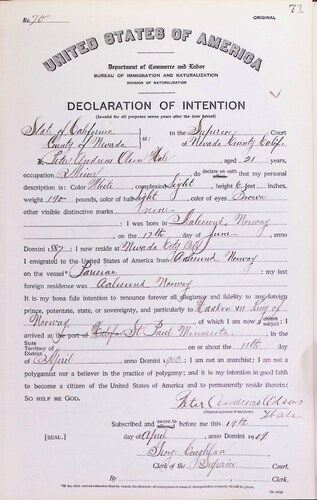 No. 70
ORIGINAL
71
UNITED STATES OF AMERICA
Department of Commerce and Labor
BUREAU OF IMMIGRATION AND NATURALIZATION
DIVISION OF NATURALIZATION
DECLARATION OF INTENTION
(Invalid for all purposes seven years after the date hereof)
State of California
County of Nevada ss: In the Superior Court
of Nevada County Calif
I, Peter Andreas Olson Hale, aged 21 years,
occupation Miner, do declare on oath that my personal
description is: Color White, complexion Light, height 6 feet inches,
weight 190 pounds, color of hair Light, color of eyes Brown
other visible distinctive marks none
I was born in Aalesund Norway
on the 17th day of June, anno
Domini 1887; I now reside at Nevada City Calif
I emigrated to the United States of America from Aalesund Norway
on the vessel* ; my last
foreign residence was Aalesund Norway
It is my bona fide intention to renounce forever all allegiance and fidelity to any foreign
prince, potentate, state, or sovereignty, and particularly to Haakon VII King of
Norway, of whom I am now a subject; I
arrived at the port of St. Paul Minnesota, in the
State Territory District of on or about the 11th day
of April, anno Domini; I am not an anarchist; I am not a
polygamist nor a believer in the practice of polygamy; and it is my intention in good faith
to become a citizen of the United States of America and to permanently reside therein:
SO HELP ME GOD.
Peter Andreas Olson
(Original signature of declarant)
Hale
Subscribed and sworn to before me this 19th
[SEAL.] day of April, anno Domini 1909
Clerk of the Superior Court.
By , Clerk.